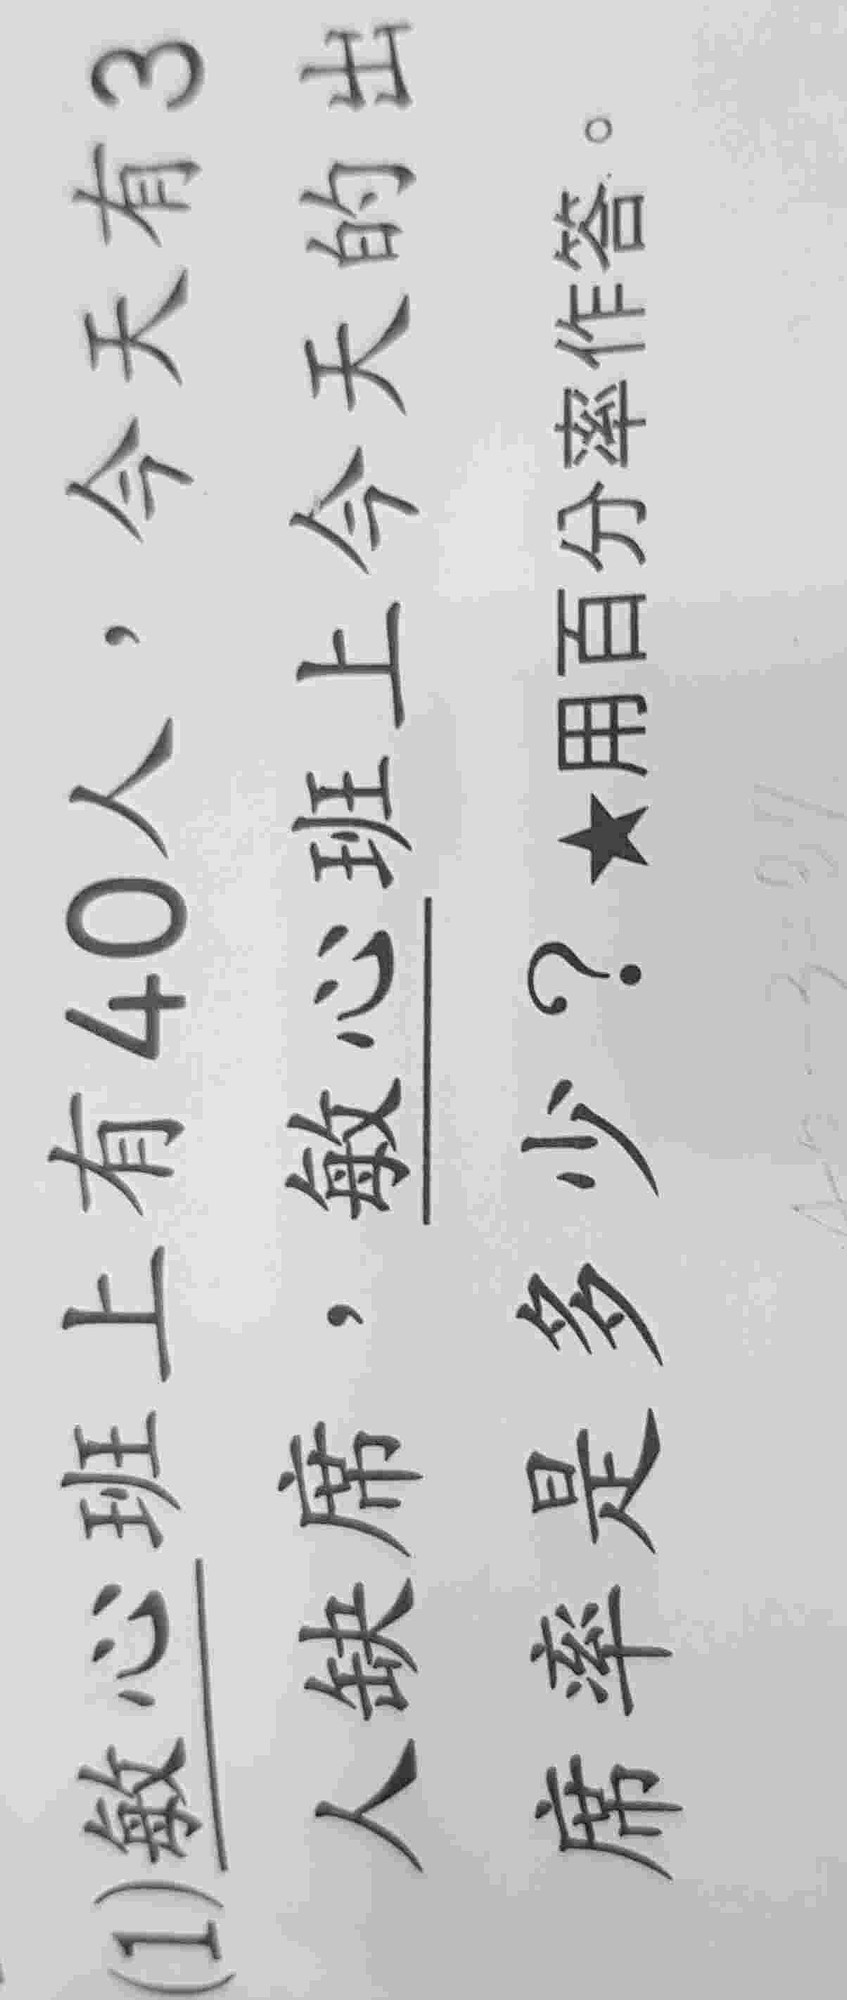 (1)敏心班上有40人，今天有3
人缺席，敏心班上今天的出
席率是多少？★用百分率作答。